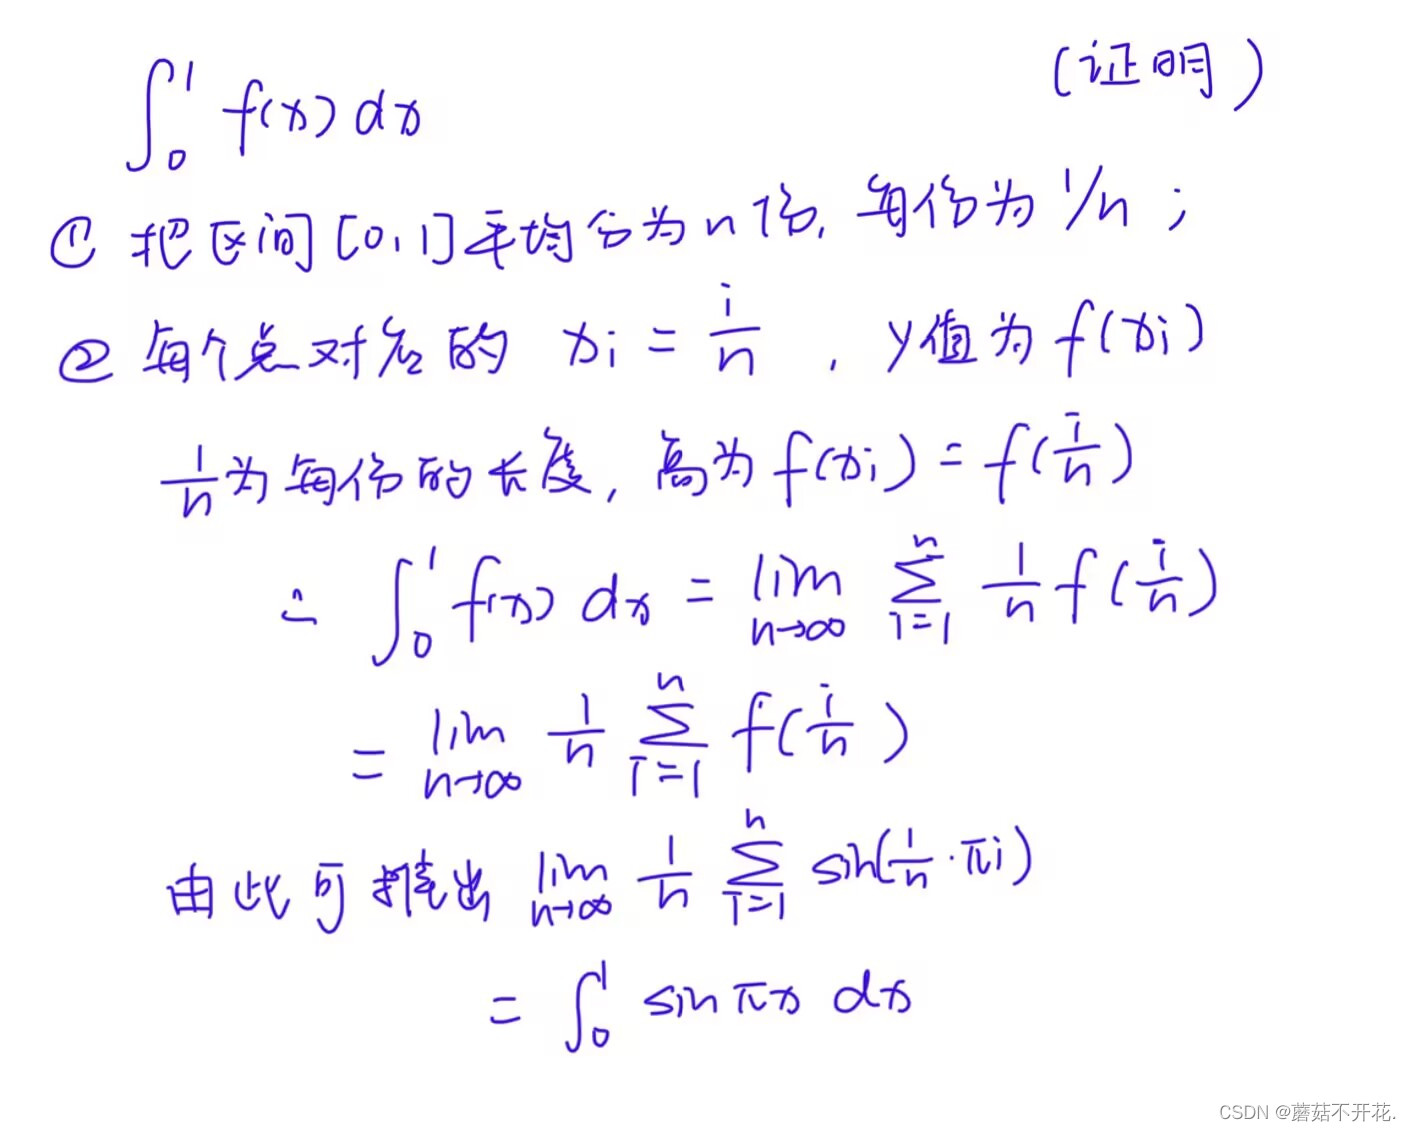 ∫₀¹ f(x) dx (证明)
① 把区间[0,1]平均分为n份, 每份为 1/n ;
② 每个点对应的 xi = i/n , y值为 f(xi)
1/n 为每份的长度, 高为 f(xi) = f(i/n)
∴ ∫₀¹ f(x) dx = lim n→∞ ∑ i=1 n 1/n f(i/n)
= lim n→∞ 1/n ∑ i=1 n f(i/n)
由此可推出 lim n→∞ 1/n ∑ i=1 n sin(1/n · πi)
= ∫₀¹ sin πx dx
CSDN @蘑菇不开花.